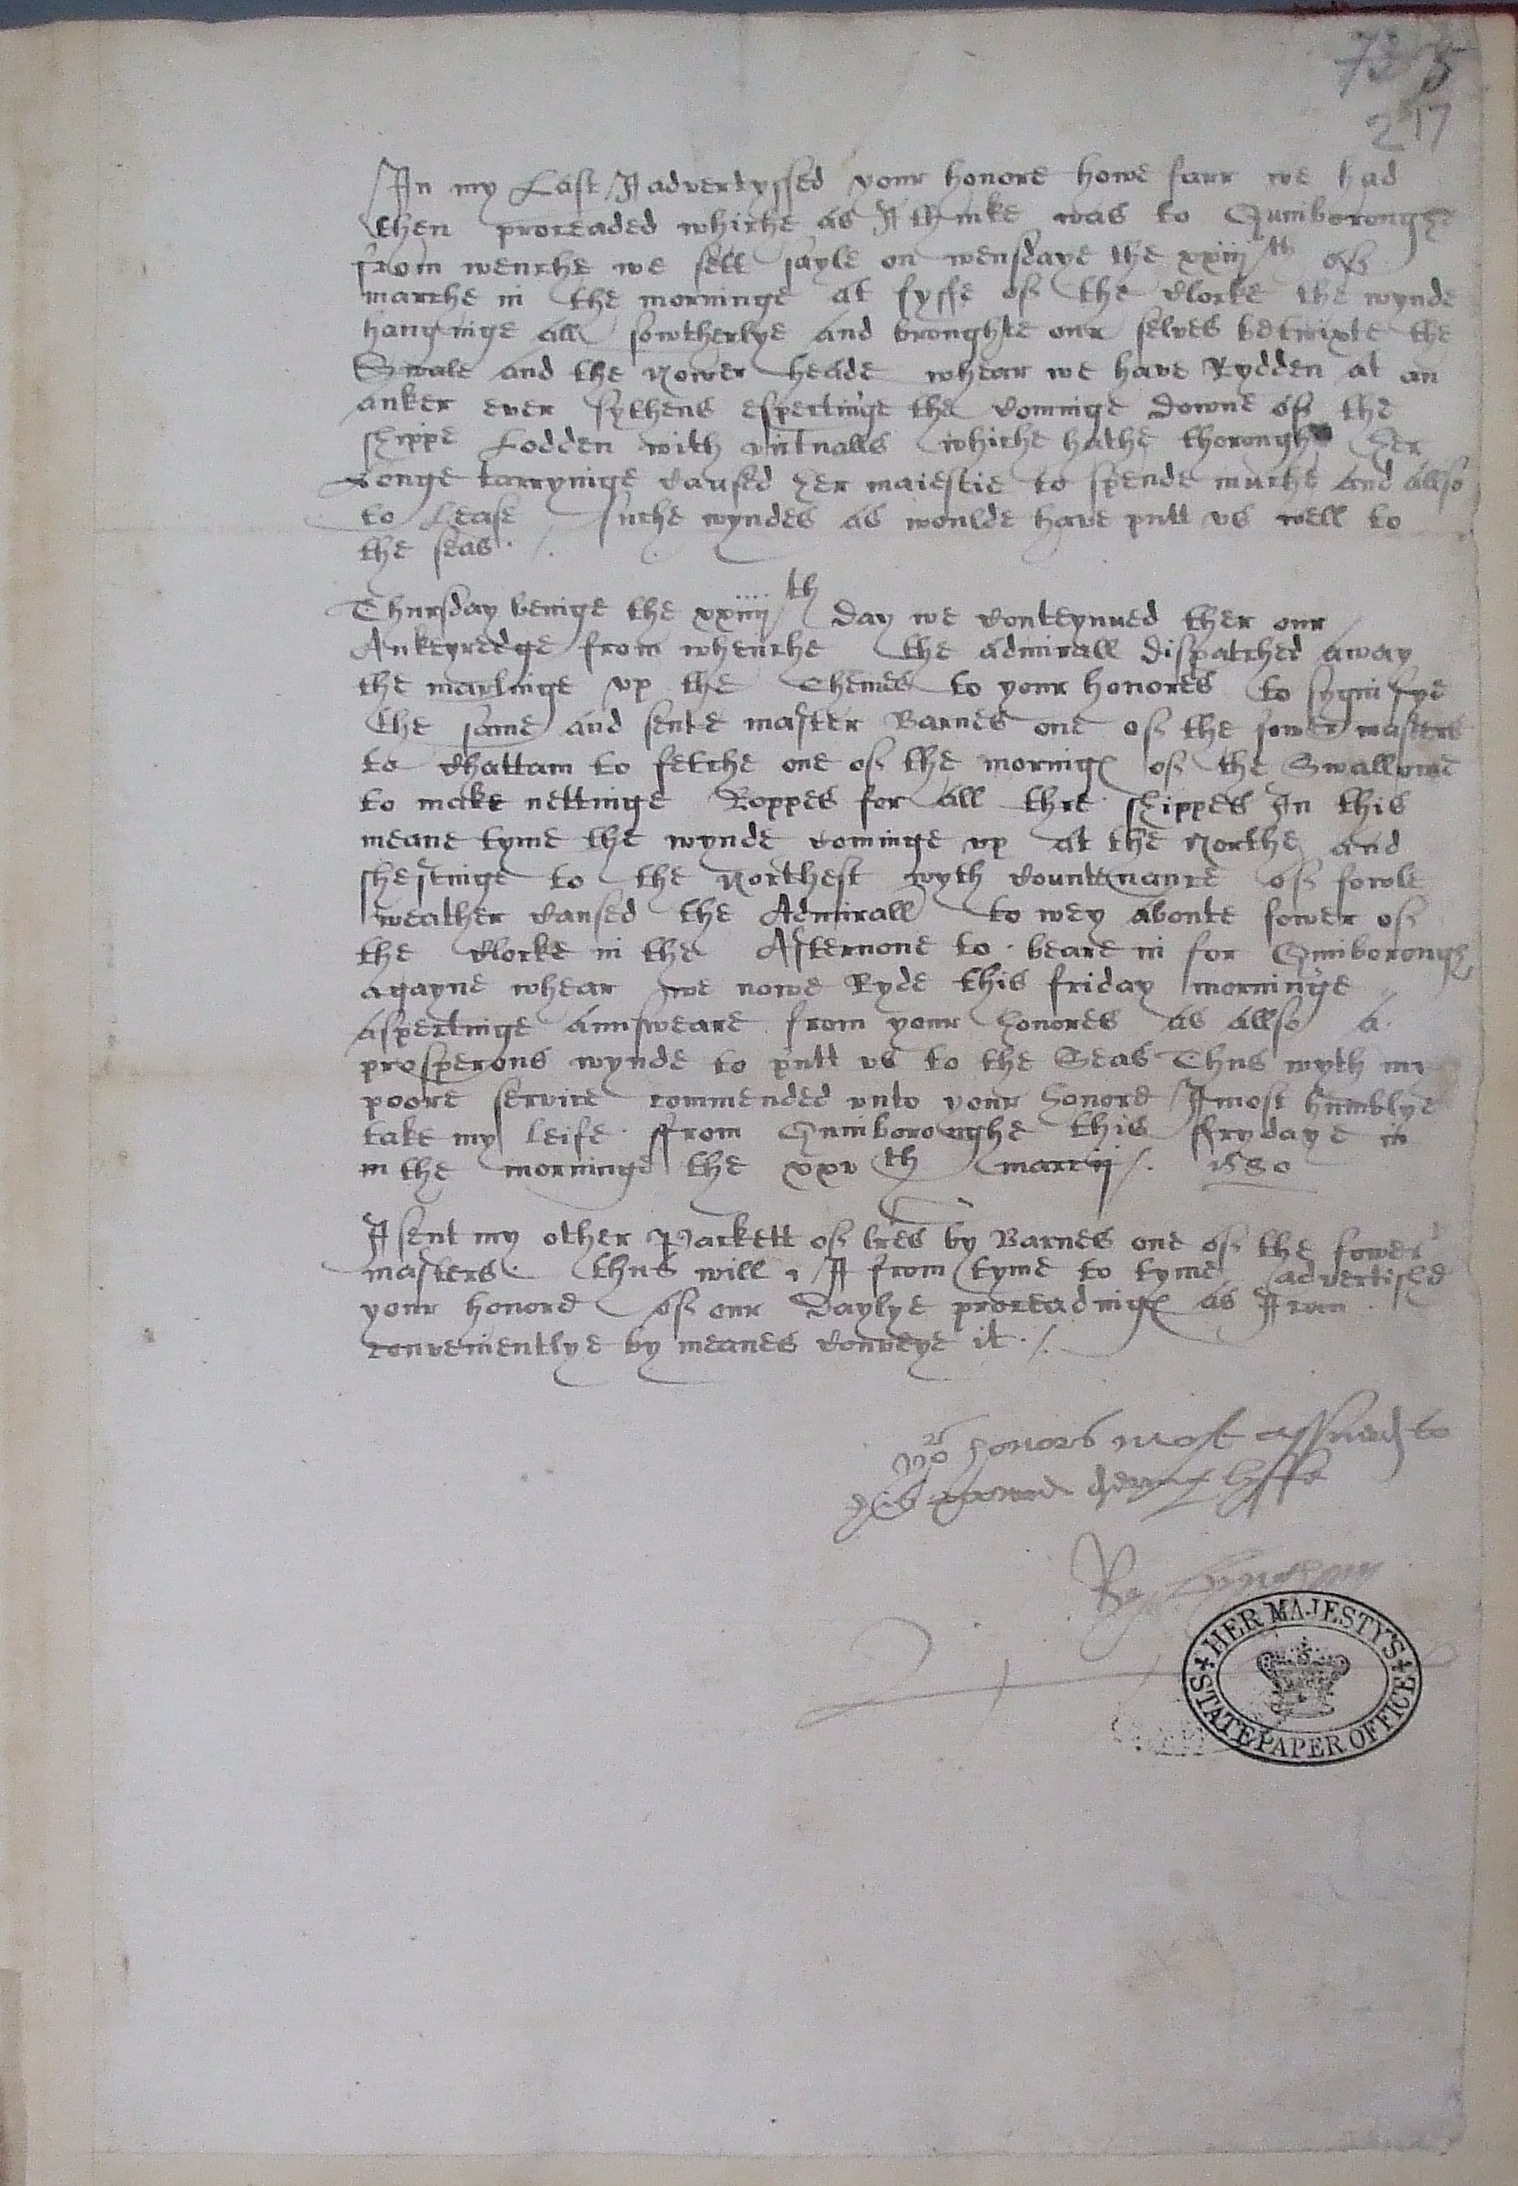 73 5
217
In my Last I advertyssed your honore howe farr we had
then proceaded whiche as I thinke was to Quinboroughe
from wenche we sett sayle on wensdaye the xxiii th off
marche in the morninge at fyffe off the clocke the wynde
hanginge all sowtherlye and broughte our selves betwixte the
Swale and the Nower heade whear we have Rydden at an
anker ever sythens espectinge the comminge downe off the
shippe Lodden with victualls whiche hathe thorough her
Longe tarryinge caused her maiestie to spende muche and allso
to Lease suche wyndes as woulde have putt vs well to
the seas ./.
Thursday beinge the xxiiii th day we conteynued ther our
Ankeyredge from whenche the admirall dispatched away
the marlinge vp the Themes to your honores to sygnifye
the same and sente master Barnes one off the fower masters
to Chattam to fetche one off the morninges off the Swallowe
to make nettinge Roppes for all thre shippes In this
meane tyme the wynde cominge vp at the Northe and
sheftinge to the Northest wyth countenance off fowle
weather caused the Admirall to wey aboute fower off
the clocke in the Afternone to beare in for Quinborough
agayne whear we nowe Ryde this friday morninge
aspectinge Annsweare from your honores as allso a
prosperous wynde to putt vs to the Seas Thus wyth my
poore service commended vnto your honore I most humblye
take my leife ffrom Quinboroughe this ffrydaye in
in the morninge the xxv th marcii ./. 1580
I sent my other Packett off lres by Barnes one off the fower
masters. thus will I from tyme to tyme advertishe
your honore off our daylye proceadinges as I can
convenientlye by meanes conveye it ./.
yor honors most assured to
lyffe
HER MAJESTY'S
STATE PAPER OFFICE